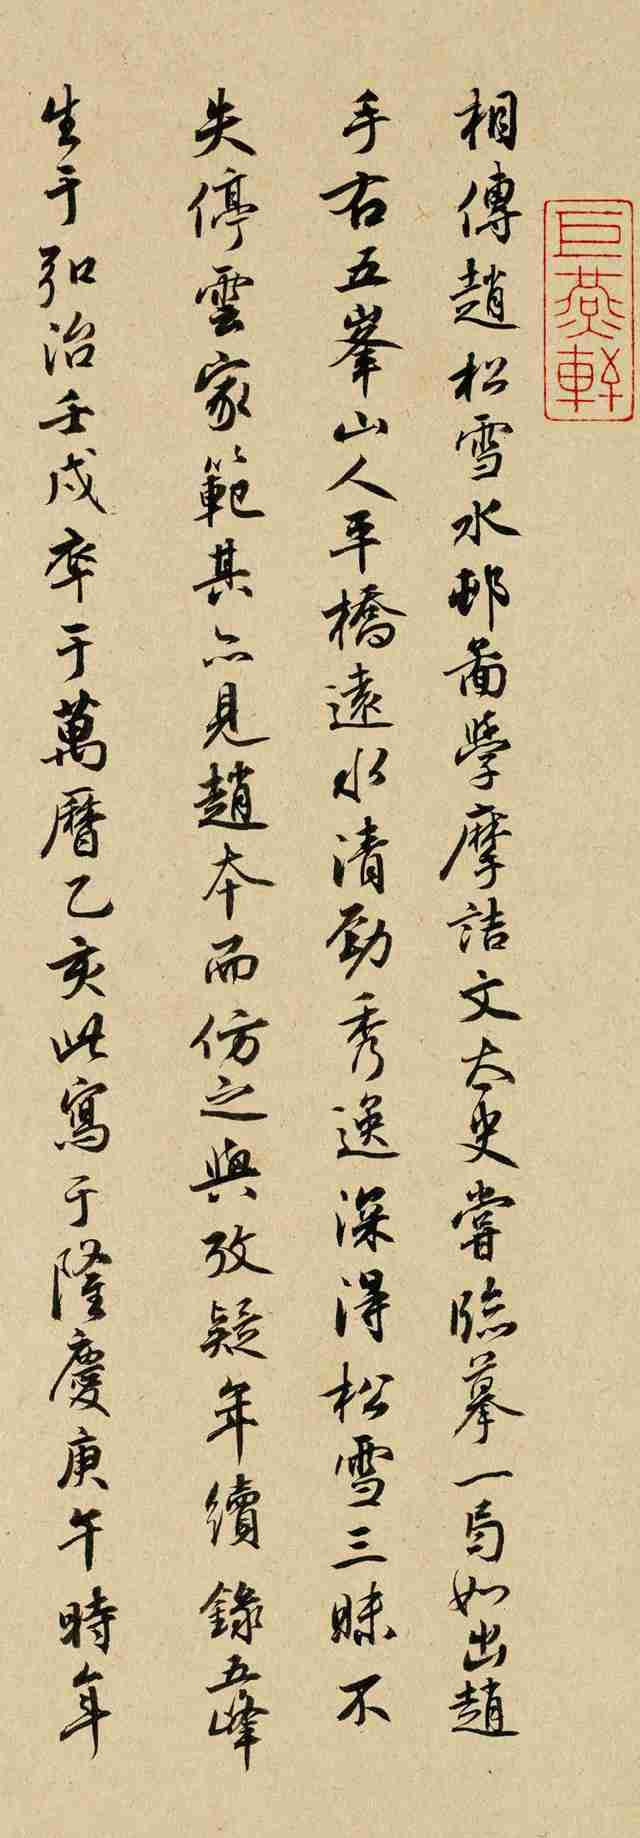 巨燕軒
相傳趙松雪水邨啚學摩詰文太史嘗臨摹一局如出趙
手右五峯山人平橋遠水清勁秀逸深得松雪三昧不
失停雲家範其亦見趙本而仿之與攷疑年續錄五峰
生于弘治壬戌卒于萬曆乙亥此寫于隆慶庚午時年